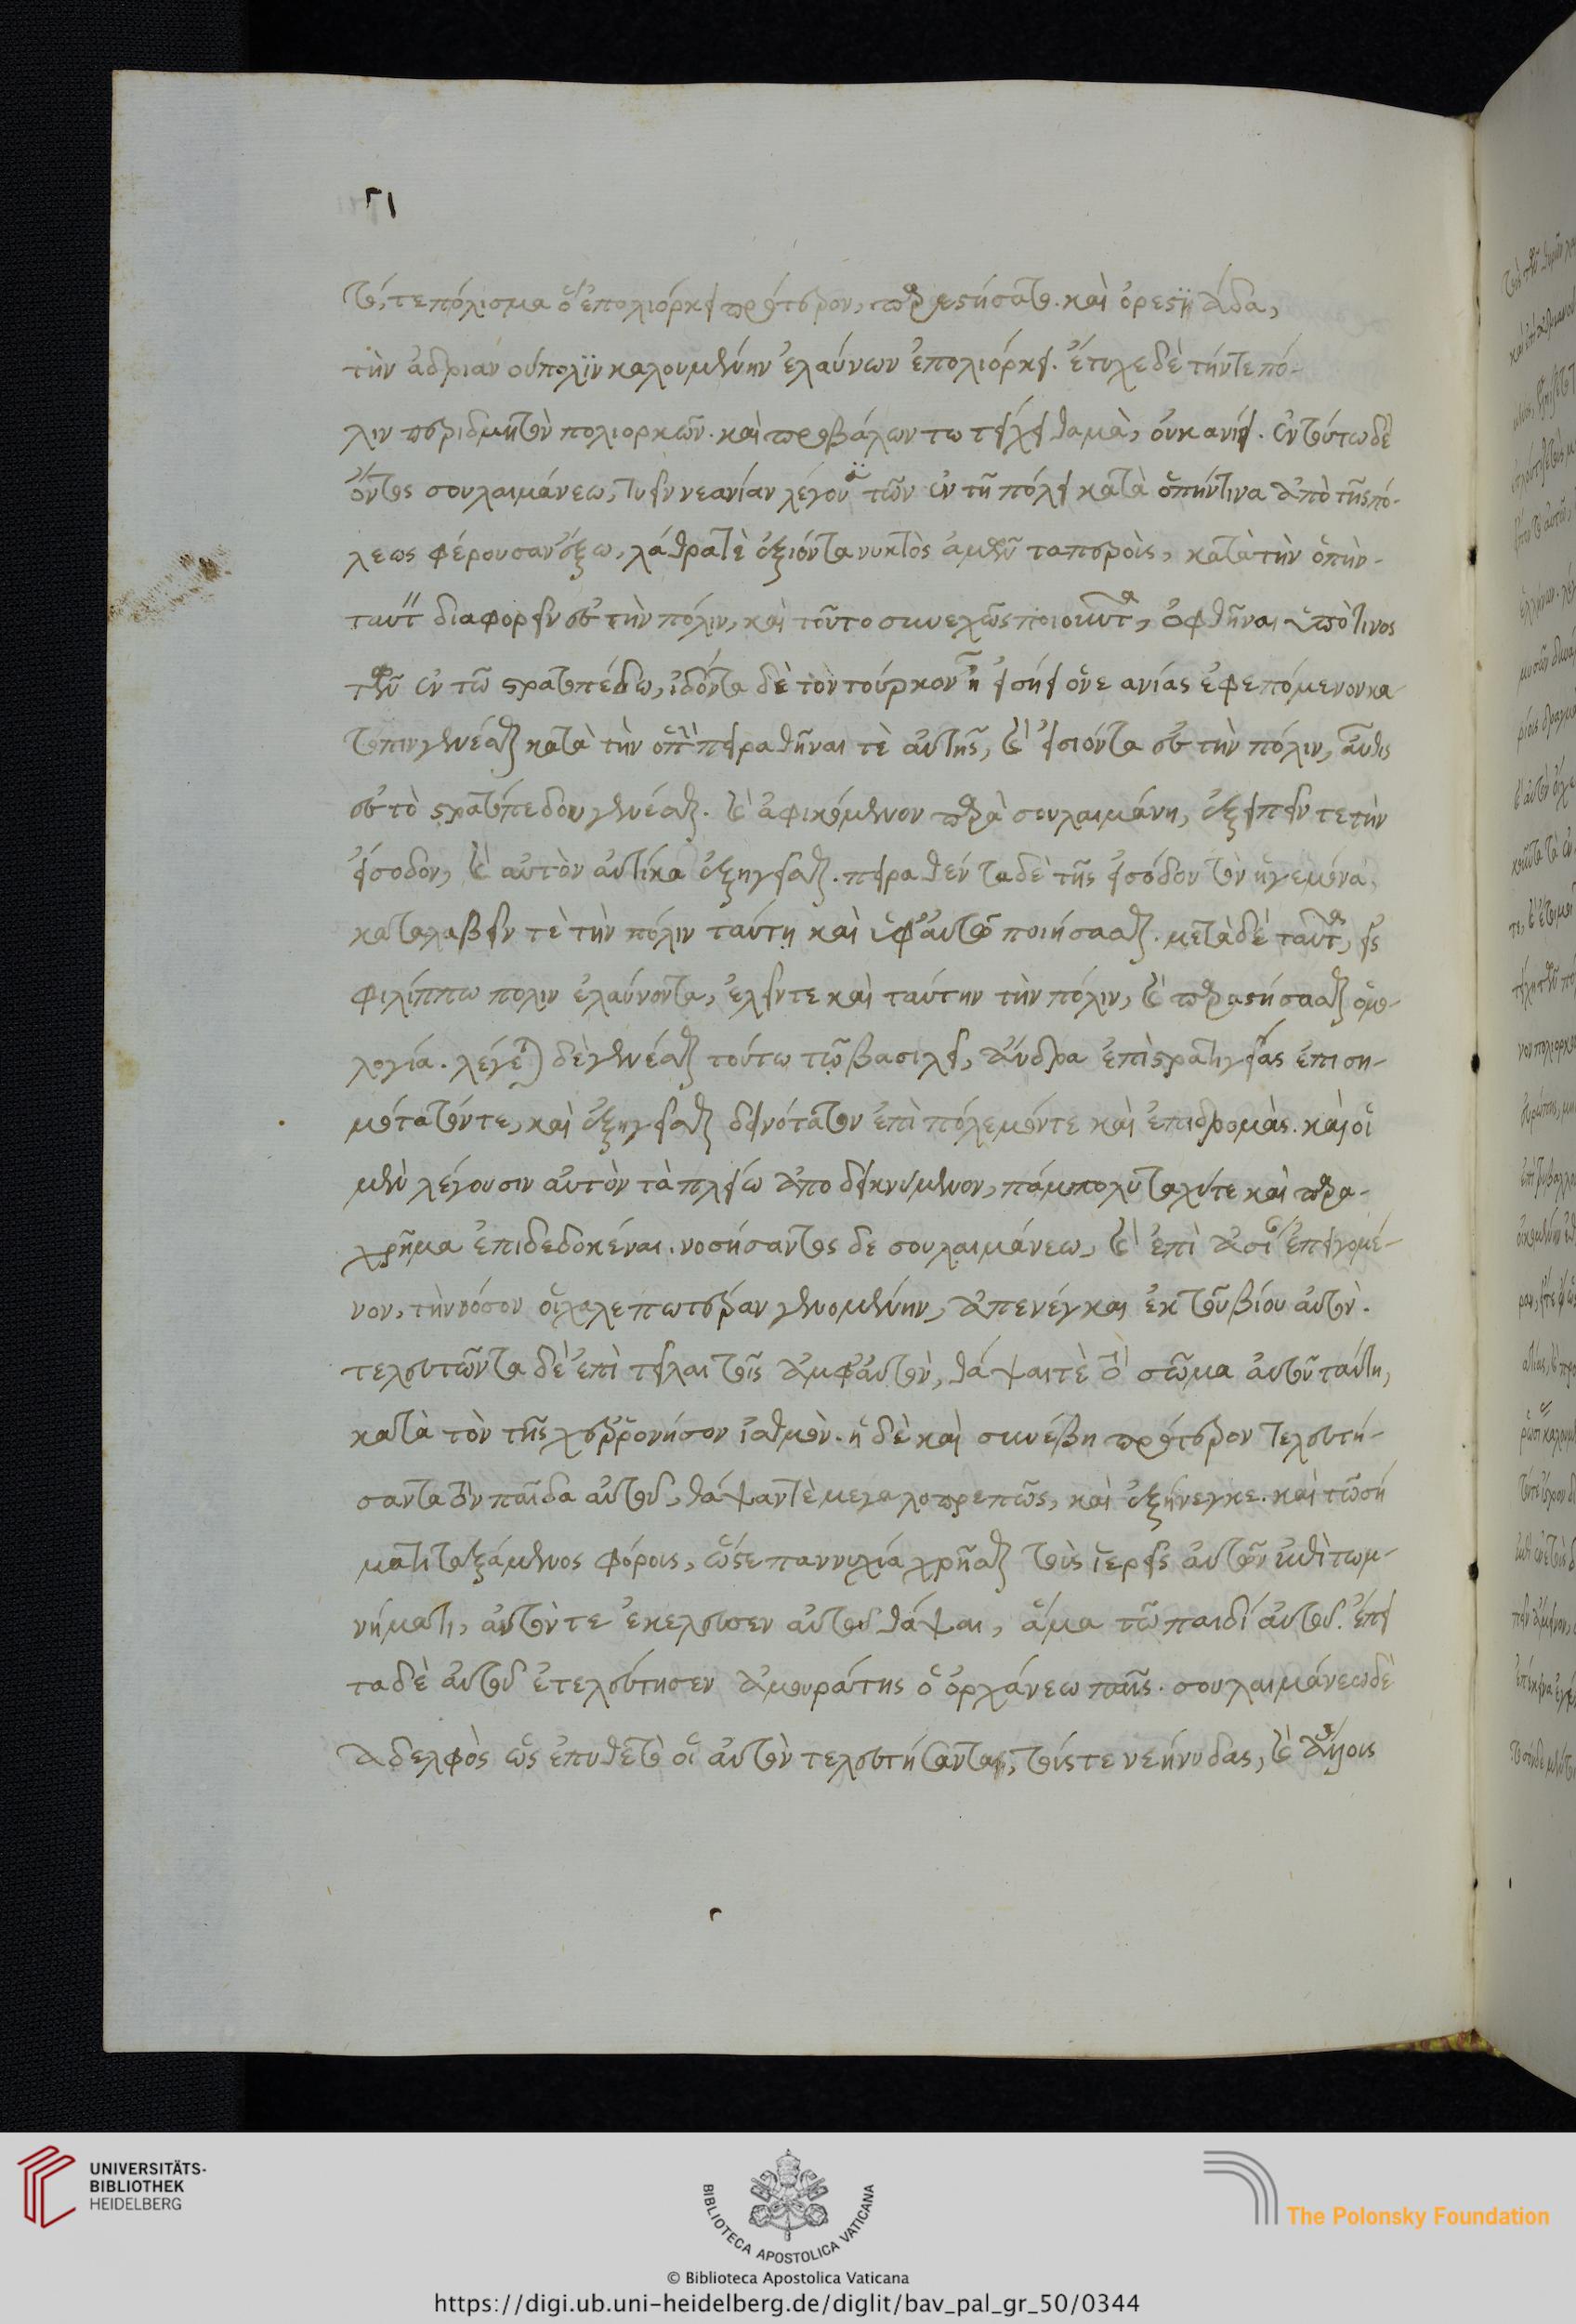 τό, τε πόλισμα ὃ ἐπολιόρκει πρότερον, παρεστήσατο. καὶ ὀρεστιάδα,
τὴν ἀδριανούπολιν καλουμένην ἐλαύνων ἐπολιόρκει. ἔτυχε δὲ τήν τε πό-
λιν περιδμητὸν πολιορκῶν. καὶ προβάλων τω τείχει θαμὰ, οὐκ ανίει. ἐν τούτω δὲ
ὄντος σουλαιμάνεω, νεανίαν λέγουσι τῶν ἐν τῆ πόλει κατὰ ὀπήν τινα ἀπὸ τῆς πό-
λεως φέρουσαν ἔξω, λάθρα τὲ ἐξιόντα νυκτὸς κατὰ τὴν ὀπὴν
ταύτην διαφορεῖν ἐς τὴν πόλιν, καὶ τοῦτο συνεχῶς ποιοῦντα, ὀφθῆναι ὑπό τινος
τῶν ἐν τῶ στρατοπέδω, ἰδόντα δὲ τὸν τοῦρκον ἐφεπόμενον κα-
τόπιν γενέσθαι κατὰ τὴν ὀπὴν πειραθῆναι τὲ αὐτῆς, καὶ εἰσιόντα ἐς τὴν πόλιν, αὖθις
ἐς τὸ στρατόπεδον γενέσθαι. καὶ ἀφικόμενον παρὰ σουλαιμάνη, ἐξειπεῖν τε τὴν
εἴσοδον, καὶ αὐτὸν αὐτίκα ἐξηγεῖσθαι. πειραθέντα δὲ τῆς εἰσόδου τὸν ἡγεμόνα,
καταλαβεῖν τὲ τὴν πόλιν ταύτη καὶ ὑφ' αὑτῷ ποιήσασθαι. μετὰ δὲ ταῦτα, εἰς
φιλίππω πολιν ἐλαύνοντα, ἑλεῖν τε καὶ ταύτην τὴν πόλιν, καὶ παραστήσασθαι ὁμο-
λογία. λέγεται δὲ γενέσθαι τούτω τῷ βασιλεῖ, ἄνδρα ἐπὶ στρατηγείας ἐπιση-
μότατόν τε, καὶ ἐξηγεῖσθαι δεινότατον ἐπὶ πόλεμόν τε καὶ ἐπιδρομὰς. καὶ οἱ
μὲν λέγουσιν αὐτὸν τὰ πλείω ἀποδεικνύμενον, πάμπολυ ταχύ τε καὶ παρα-
χρῆμα ἐπιδεδοκέναι. νοσήσαντος δε σουλαιμάνεω, καὶ ἐπὶ ἀσίαν ἐπειγομέ-
νου, τὴν νόσον οἱ χαλεπωτέραν γενομένην, ἀπενέγκαι ἐκ τοῦ βίου αὐτὸν.
τελευτῶντα δὲ ἐπὶ τεῖλαι τοῖς ἀμφ' αὐτὸν, θάψαι τὲ τὸ σῶμα αὐτοῦ ταύτη,
κατὰ τὸν τῆς χερρονήσου ἰσθμὸν. ἧ δὲ καὶ συνέβη πρότερον τελευτή-
σαντα τὸν παῖδα αὐτοῦ, θάψαντὲ μεγαλοπρεπῶς, καὶ ἐξήνεγκε. καὶ τῶ σή
ματι ταξάμενος φόροις, ὥστε παννυχία χρῆσθαι τοῖς ἱερεῖς αὐτῶν ἐπὶ τω μ-
νήματι, αὐτόν τε ἐκέλευσεν αὐτοῦ θάψαι, ἅμα τῶ παιδί αὐτοῦ. ἔπει
τα δὲ αὐτοῦ ἐτελεύτησεν ἀμουράτης ὁ ὀρχάνεω παῖς. σουλαιμάνεω δὲ
ἀδελφὸς ὡς ἐπυθετο οἱ αὐτὸν τελευτήσαντα, τούς τε νεήνυδας, καὶ ἄλλοις
UNIVERSITÄTS-
BIBLIOTHEK
HEIDELBERG
BIBLIOTECA APOSTOLICA VATICANA
The Polonsky Foundation
© Biblioteca Apostolica Vaticana
https://digi.ub.uni-heidelberg.de/diglit/bav_pal_gr_50/0344